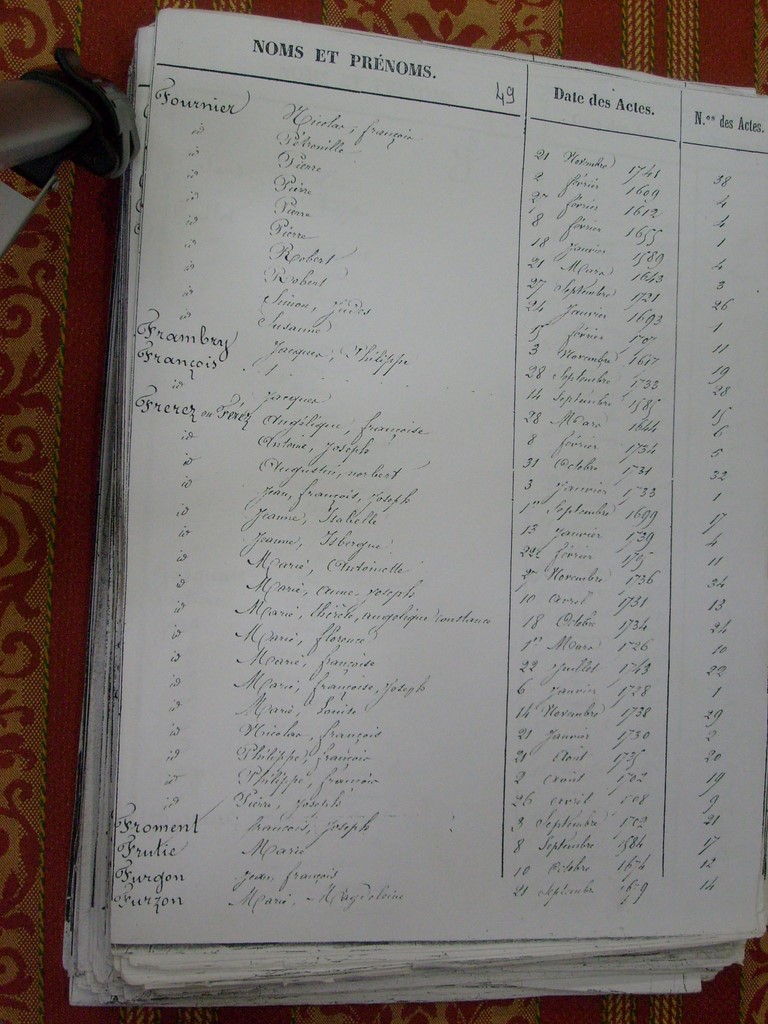 NOMS ET PRÉNOMS. 49 Date des Actes. N.os des Actes.
Fournier Nicolas, françois 21 Novembre 1741 38
id Pétronille 2 février 1609 4
id Pierre 27 février 1612 4
id Pierre 8 février 1655 1
id Pierre 18 Janvier 1589 4
id Pierre 21 Mars 1643 3
id Robert 27 Septembre 1721 26
id Robert 24 Janvier 1693 1
id Simon, Judes 15 février 1707 11
id Susanne 3 Novembre 1617 19
Frambry Jacques, Philippe 28 Septembre 1733 28
François 14 Septembre 1585 15
id Jacques 28 Mars 1644 6
Frerez ou Férez Angélique, françoise 8 février 1734 5
id Antoine, Joseph 31 Octobre 1731 32
id Augustin, norbert 3 Janvier 1733 1
id Jean, françois, Joseph 1er Septembre 1699 17
id Jeanne, Isabelle 13 Janvier 1739 4
id Jeanne, Isbergue 22 février 1705 11
id Marie, Antoinette 27 Novembre 1736 34
id Marie, anne, joseph 10 avril 1731 13
id Marie, thérèse, angélique constance 18 Octobre 1734 24
id Marie, florence 1er Mars 1726 10
id Marie, françoise 22 Juillet 1743 22
id Marie, françoise, Joseph 6 Janvier 1728 1
id Marie, Louise 14 Novembre 1738 29
id Nicolas, françois 21 Janvier 1730 2
id Philippe, françois 21 Août 1735 20
id Philippe, françois 2 avril 1702 19
id Pierre, Joseph 26 avril 1708 9
Froment françois, Joseph 3 Septembre 1702 21
Frutie Marie 8 Septembre 1584 17
Furgon Jean, françois 10 Octobre 1674 12
Furzon Marie, Magdeleine 21 Septembre 1679 14